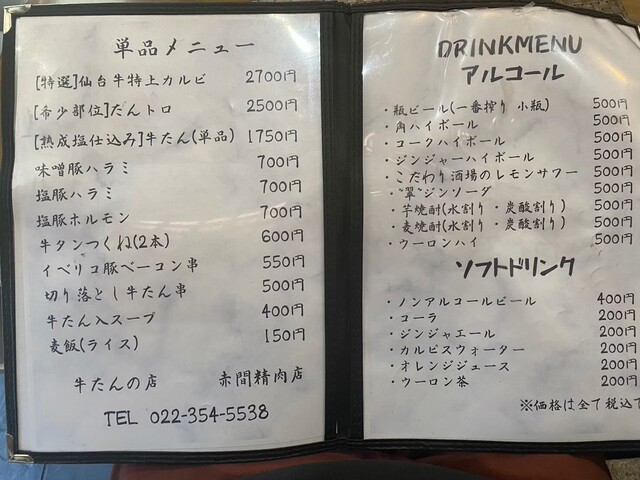 単品メニュー
[特選]仙台牛特上カルビ 2700円
[希少部位]だんトロ 2500円
[熟成塩仕込み]牛たん(単品) 1750円
味噌豚ハラミ 700円
塩豚ハラミ 700円
塩豚ホルモン 700円
牛タンつくね(2本) 600円
イベリコ豚ベーコン串 550円
切り落とし牛たん串 500円
牛たん入スープ 400円
麦飯(ライス) 150円
牛たんの店 赤間精肉店
TEL 022-354-5538
DRINKMENU
アルコール
・瓶ビール(一番搾り 小瓶) 500円
・角ハイボール 500円
・コークハイボール 500円
・ジンジャーハイボール 500円
・こだわり酒場のレモンサワー 500円
・"翠"ジンソーダ 500円
・芋焼酎(水割り・炭酸割り) 500円
・麦焼酎(水割り・炭酸割り) 500円
・ウーロンハイ 500円
ソフトドリンク
・ノンアルコールビール 400円
・コーラ 200円
・ジンジャエール 200円
・カルピスウォーター 200円
・オレンジジュース 200円
・ウーロン茶 200円
※価格は全て税込で